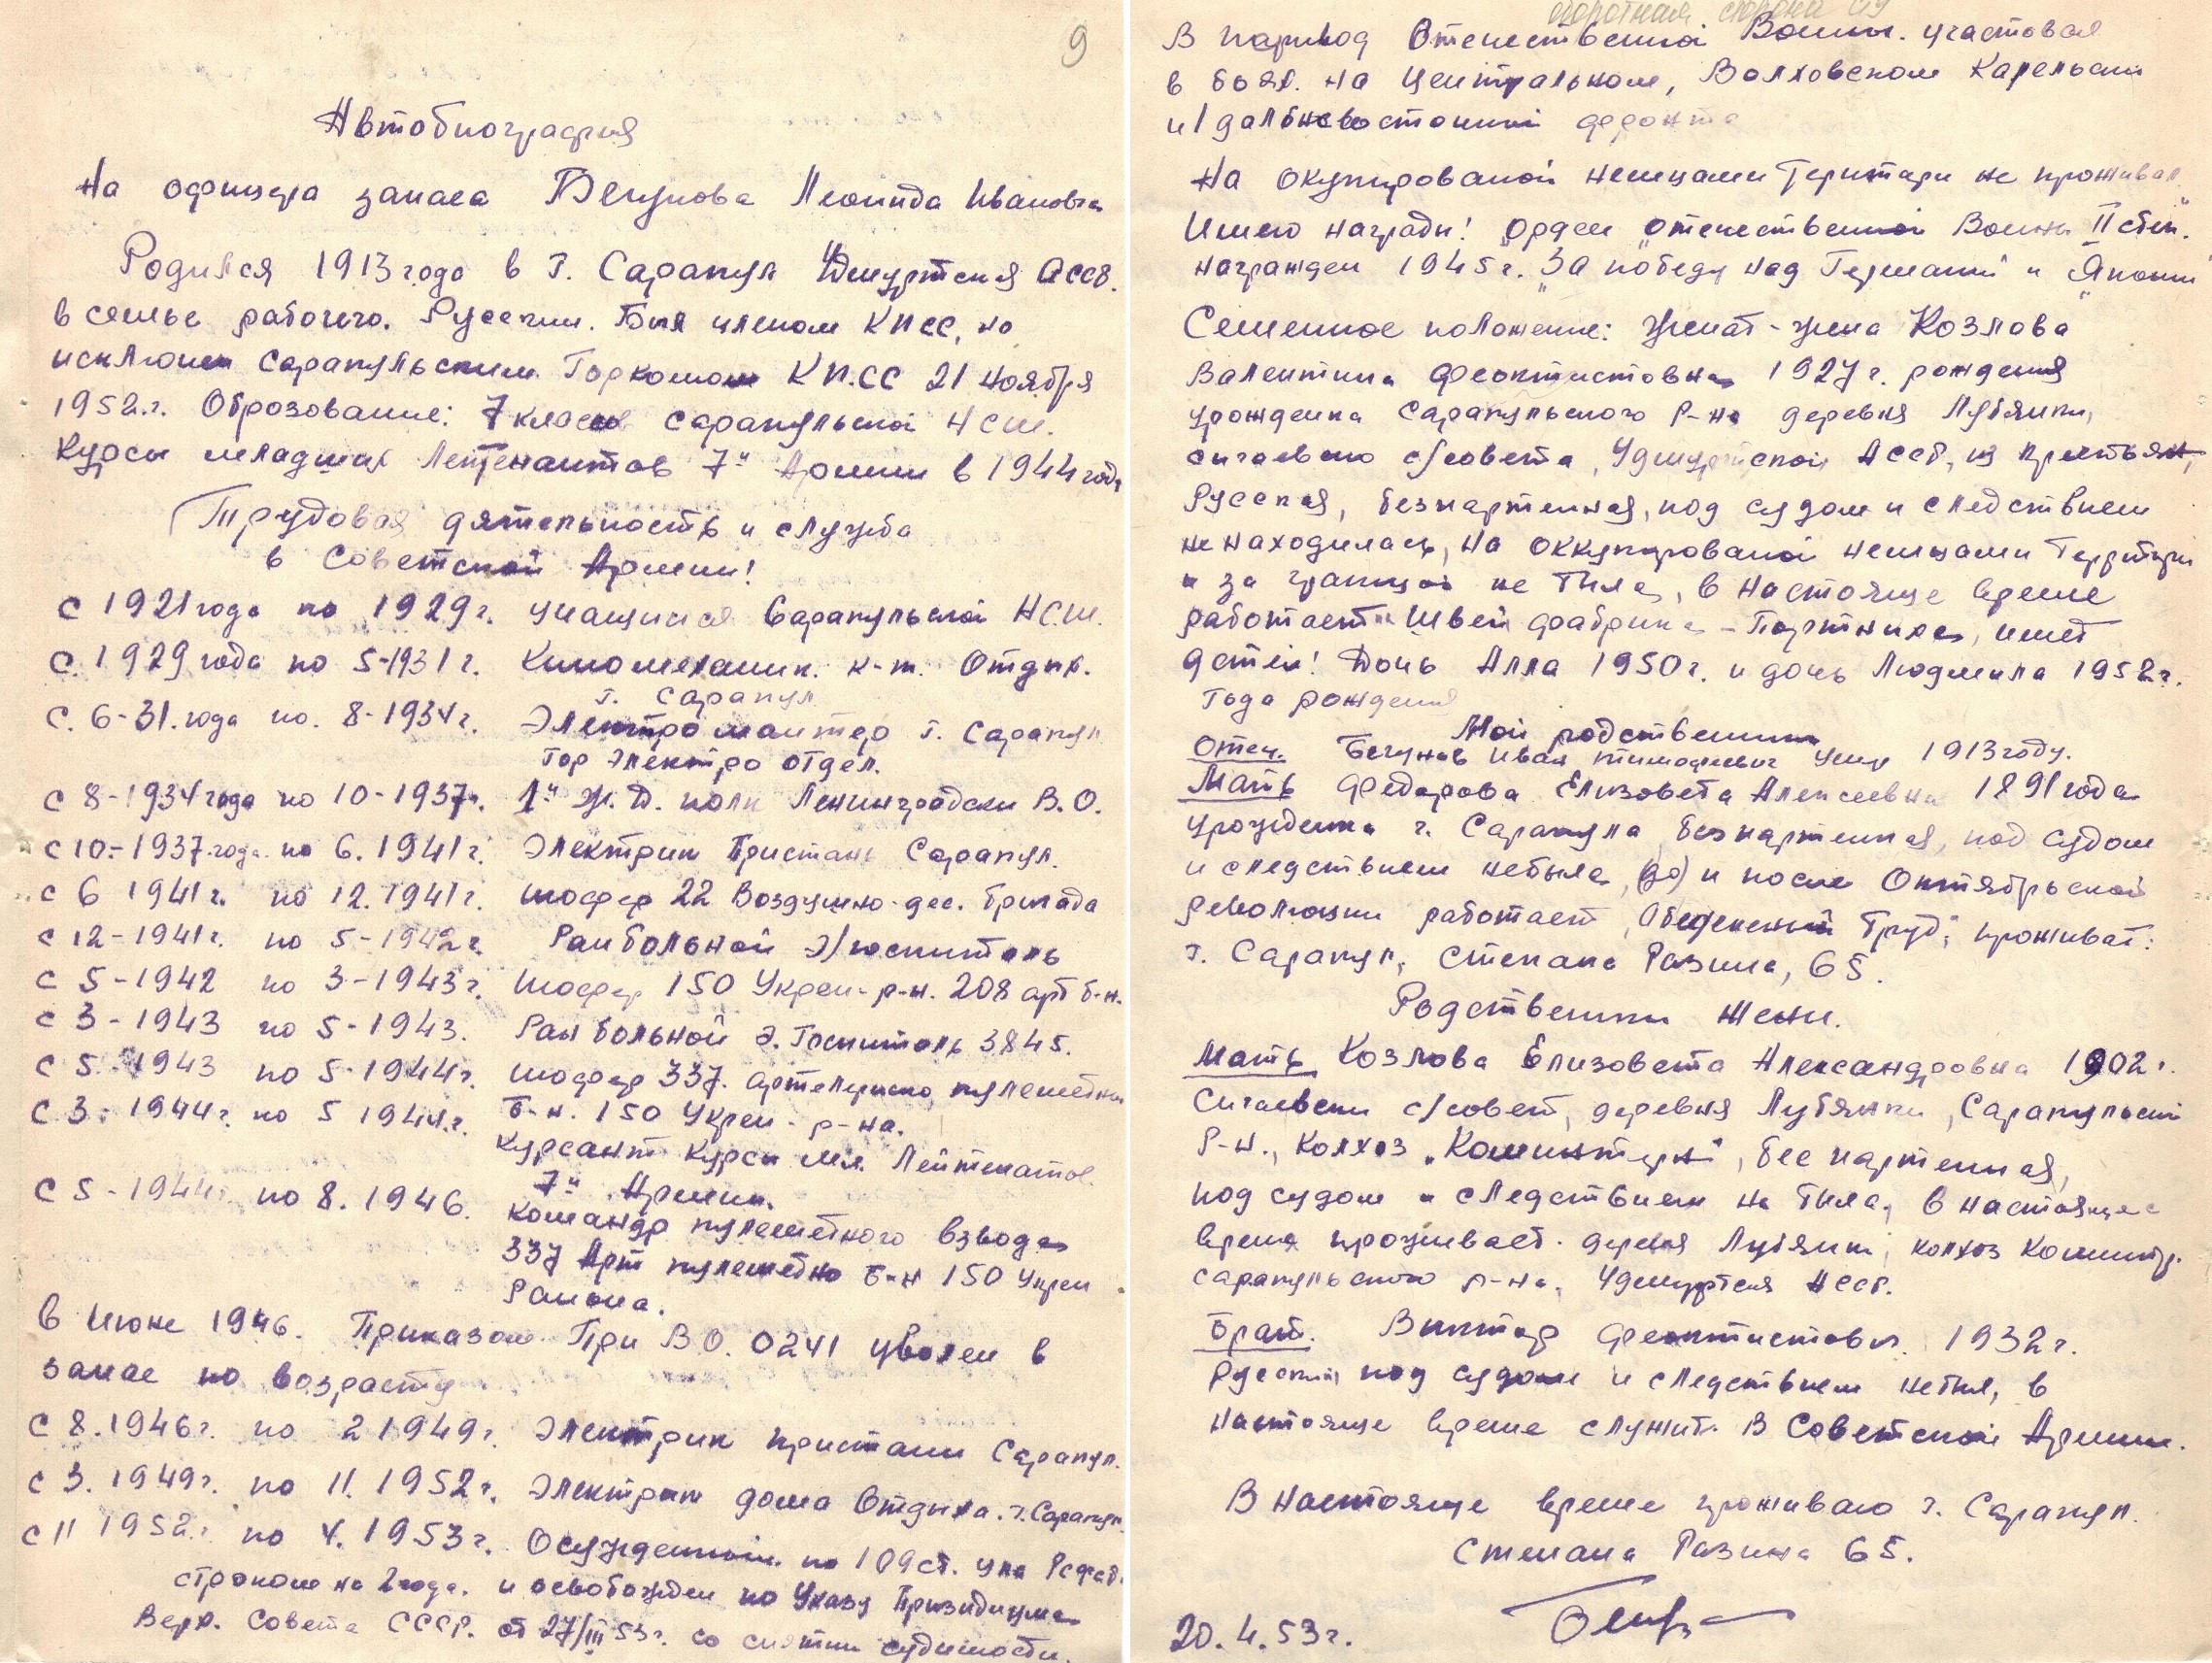 9
Автобиография
На офицера запаса Бегунова Леонида Ивановича
Родился 1913 года в г. Сарапул Удмуртская АССР.
в семье рабочего. Русский. Был членом КПСС, но
исключен Сарапульским Горкомом КП.СС 21 ноября
1952.г. Оброзование: 7 класов Сарапульской НСШ.
Курсы младших Лейтенантов 7й Армии в 1944 году
Трудовая дятельность и служба
в Советской Армии!
С 1921 года по 1929 г. учащийся Сарапульской НСШ.
С. 1929 года по 5-1931 г. Киномеханик. к-т. Отдых.
г. Сарапул
С. 6-31. года по. 8-1934 г. Электромонтер г. Сарапул
Гор электро отдел.
С 8-1934 года по 10-1937 г. 1й Ж.Д. полк Ленинградски В.О.
С 10.-1937 года по 6.1941 г. Электрик Пристань Сарапул.
С 6 1941 г. по 12.1941 г. шофер 22 Воздушно-дес. бригада
С 12-1941 г. по 5-1942 г. Ранбольной э/госпиталь
С 5-1942 по 3-1943 г. Шофер 150 Укреп-р-н. 208 арт б-н.
С 3-1943 по 5-1943. Ран больной э. Госпиталь 3845.
С 5-1943 по 5-1944 г. шофер 337. артелериско пулеметный
б-н. 150 Укреп-р-на.
С 3-1944 г. по 5 1944.г. Курсант Курсы мл. Лейтенатов
7й Армии.
С 5-1944 г. по 8.1946. командр пулеметного взвода
337 Арт пулеметно б-н 150 Укреп
Района.
В Июне 1946. Приказом При ВО. 0241 уволен в
запас по возрасту
С 8.1946 г. по 2 1949 г. Электрик пристани Сарапул.
С 3.1949 г. по 11.1952 г. Электрик дома Отдыха. г. Сарапул.
С 11 1952.г по 4.1953 г. Осужденный по 109 ст. УК РСФСР.
строком на 2 года. и освобожден по Указу Призидиума
Верх. Совета СССР. от 27/III 53 г. со снятии судимости.
оборотная сторона
В париод Отечественной Войны. участвовал
в боях. на Центральном, Волховском Карельски
и 1 дальневосточный фронта
На окупированой немцами Територи не проживал.
Имею награды! Орден "Отечественной Войны II степ."
награжден 1945 г. "За победу над Германий и "Японий
Семенное положение: женат - жена Козлова
Валентина Феоктистовна 1927 г. рождения
урожденка Сарапульского р-на деревня Лубянки,
сигаевско с/совета, Удмуртской АССР, из крестьян,
Русская, безпартейная, под судом и следствием
не находилась, на оккупированой немцами Территори
и за границой не была, в настояще время
работает Швей фабрика - Портниха, имеет
детей! Дочь Алла 1950 г. и дочь Людмила 1952 г.
года рождения
Мои родственики
Отец. Бегунов Иван Тимофеевич умер 1913 году.
Мать Федорова Елизовета Алексеевна 1891 года
урожденка г. Сарапула, безпартейная, под судом
и следствием небыла, (до) и после Октябрьской
революции работает Обеденный Труд, проживат:
г. Сарапул, Степана Разина, 65.
Родственики жены.
Мать Козлова Елизовета Александровна 1902 г.
Сигаевски с/совет, деревня Лубянки, Сарапульский
р-н., колхоз "Коминтерн", бес партейная,
под судом и следствием не была, в настоящее
время проживает. деревня Лубянки, колхоз Коминтр.
Сарапульского р-на, Удмуртская АССР.
Брат. Виктор Феоктистович. 1932 г.
Русский, под судом и следствием не был, в
настояще время служит. В Советской Армии.
В настояще время проживаю г. Сарапул.
Степана Разина 65.
20.4.53 г.